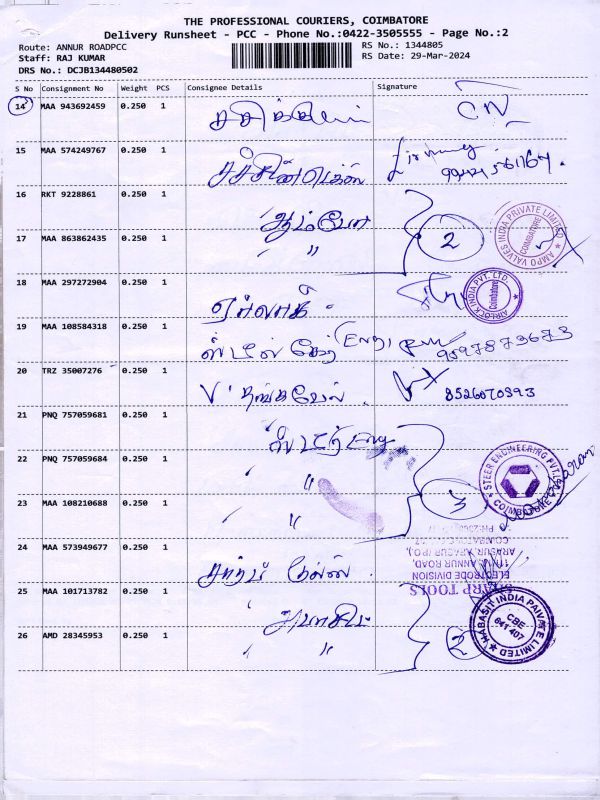 THE PROFESSIONAL COURIERS, COIMBATORE
Delivery Runsheet - PCC - Phone No.:0422-3505555 - Page No.:2
Route: ANNUR ROADPCC
RS No.: 1344805
Staff: RAJ KUMAR
RS Date: 29-Mar-2024
DRS No.: DCJB134480502
S No Consignment No Weight PCS Consignee Details Signature
14 MAA 943692459 0.250 1
15 MAA 574249767 0.250 1
16 RKT 9228861 0.250 1 ஆம்போ
17 MAA 863862435 0.250 1 〃 2
AMPO VALVES INDIA PRIVATE LIMITED
COIMBATORE
18 MAA 297272904 0.250 1 ஏர்லாக்
AIRLOCK INDIA PVT. LTD.
Coimbatore
19 MAA 108584318 0.250 1 9597873673
20 TRZ 35007276 0.250 1 V. தங்கவேல் 8526070393
21 PNQ 757059681 0.250 1
22 PNQ 757059684 0.250 1 〃
STEER ENGINEERING PVT.LTD
COIMBATORE
23 MAA 108210688 0.250 1 〃 3
24 MAA 573949677 0.250 1
TOOLS
ELECTRODE DIVISION
ANNUR ROAD,
ARASUR (P.O.),
25 MAA 101713782 0.250 1
26 AMD 28345953 0.250 1 〃 2
HABASIT INDIA PAIVATE LIMITED
CBE
641 407